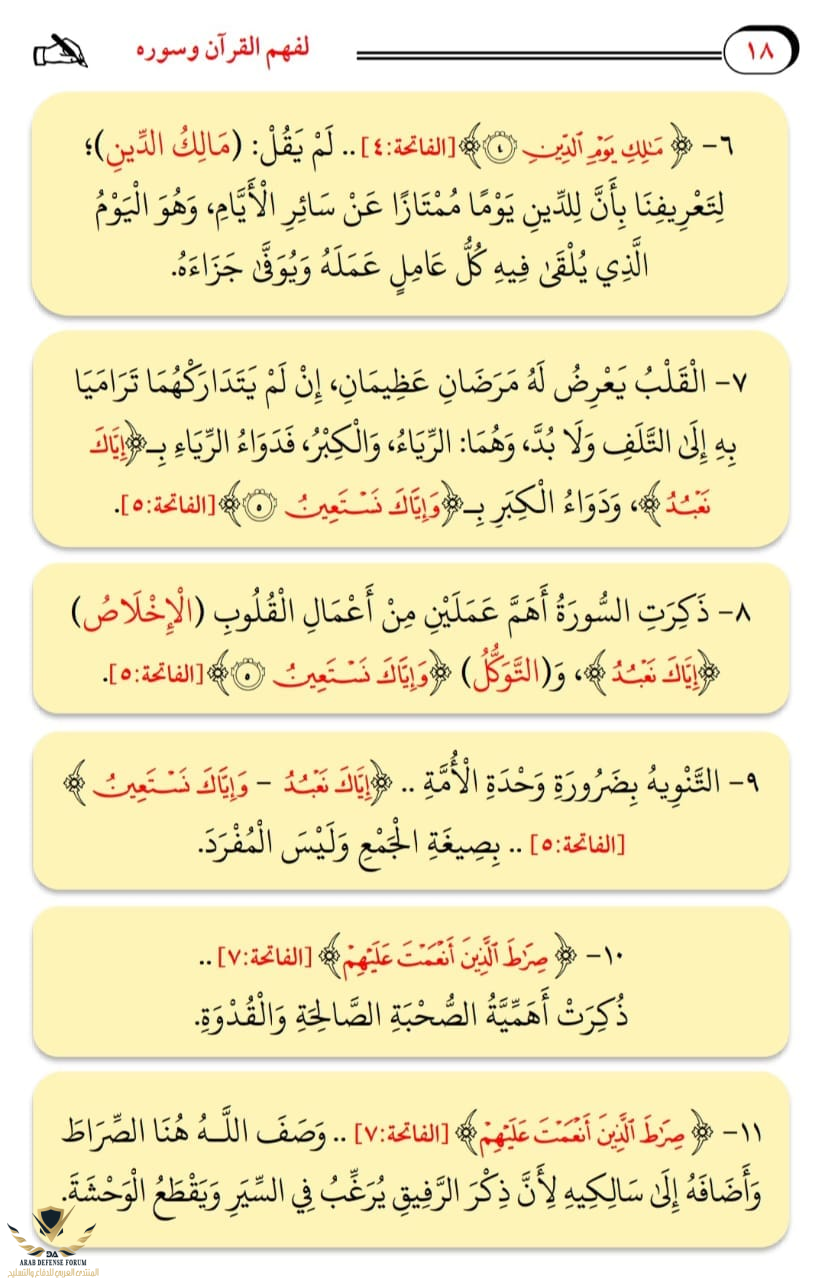 ١٨
لفهم القرآن وسوره
٦- ﴿ مَٰلِكِ يَوْمِ ٱلدِّينِ ٤ ﴾ [الفاتحة:٤] .. لَمْ يَقُلْ: (مَالِكُ الدِّينِ)؛
لِتَعْرِيفِنَا بِأَنَّ لِلدِّينِ يَوْمًا مُمْتَازًا عَنْ سَائِرِ الْأَيَّامِ، وَهُوَ الْيَوْمُ
الَّذِي يُلْقَىٰ فِيهِ كُلُّ عَامِلٍ عَمَلَهُ وَيُوَفَّىٰ جَزَاءَهُ.
٧- الْقَلْبُ يَعْرِضُ لَهُ مَرَضَانِ عَظِيمَانِ، إِنْ لَمْ يَتَدَارَكْهُمَا تَرَامَيَا
بِهِ إِلَىٰ التَّلَفِ وَلَا بُدَّ، وَهُمَا: الرِّيَاءُ، وَالْكِبْرُ، فَدَوَاءُ الرِّيَاءِ بِـ﴿إِيَّاكَ
نَعْبُدُ﴾، وَدَوَاءُ الْكِبَرِ بِـ﴿وَإِيَّاكَ نَسْتَعِينُ ٥ ﴾ [الفاتحة:٥].
٨- ذَكَرَتِ السُّورَةُ أَهَمَّ عَمَلَيْنِ مِنْ أَعْمَالِ الْقُلُوبِ (الْإِخْلَاصُ)
﴿إِيَّاكَ نَعْبُدُ﴾، وَ(التَّوَكُّلُ) ﴿وَإِيَّاكَ نَسْتَعِينُ ٥ ﴾ [الفاتحة:٥].
٩- التَّنْوِيهُ بِضَرُورَةِ وَحْدَةِ الْأُمَّةِ .. ﴿إِيَّاكَ نَعْبُدُ - وَإِيَّاكَ نَسْتَعِينُ ﴾
[الفاتحة:٥] .. بِصِيغَةِ الْجَمْعِ وَلَيْسَ الْمُفْرَدَ.
١٠- ﴿ صِرَٰطَ ٱلَّذِينَ أَنْعَمْتَ عَلَيْهِمْ﴾ [الفاتحة:٧] ..
ذُكِرَتْ أَهَمِّيَّةُ الصُّحْبَةِ الصَّالِحَةِ وَالْقُدْوَةِ.
١١- ﴿ صِرَٰطَ ٱلَّذِينَ أَنْعَمْتَ عَلَيْهِمْ﴾ [الفاتحة:٧] .. وَصَفَ اللَّهُ هُنَا الصِّرَاطَ
وَأَضَافَهُ إِلَىٰ سَالِكِيهِ لِأَنَّ ذِكْرَ الرَّفِيقِ يُرَغِّبُ فِي السِّيَرِ وَيَقْطَعُ الْوَحْشَةَ.
ARAB DEFENSE FORUM
المنتدى العربي للدفاع والتسليح